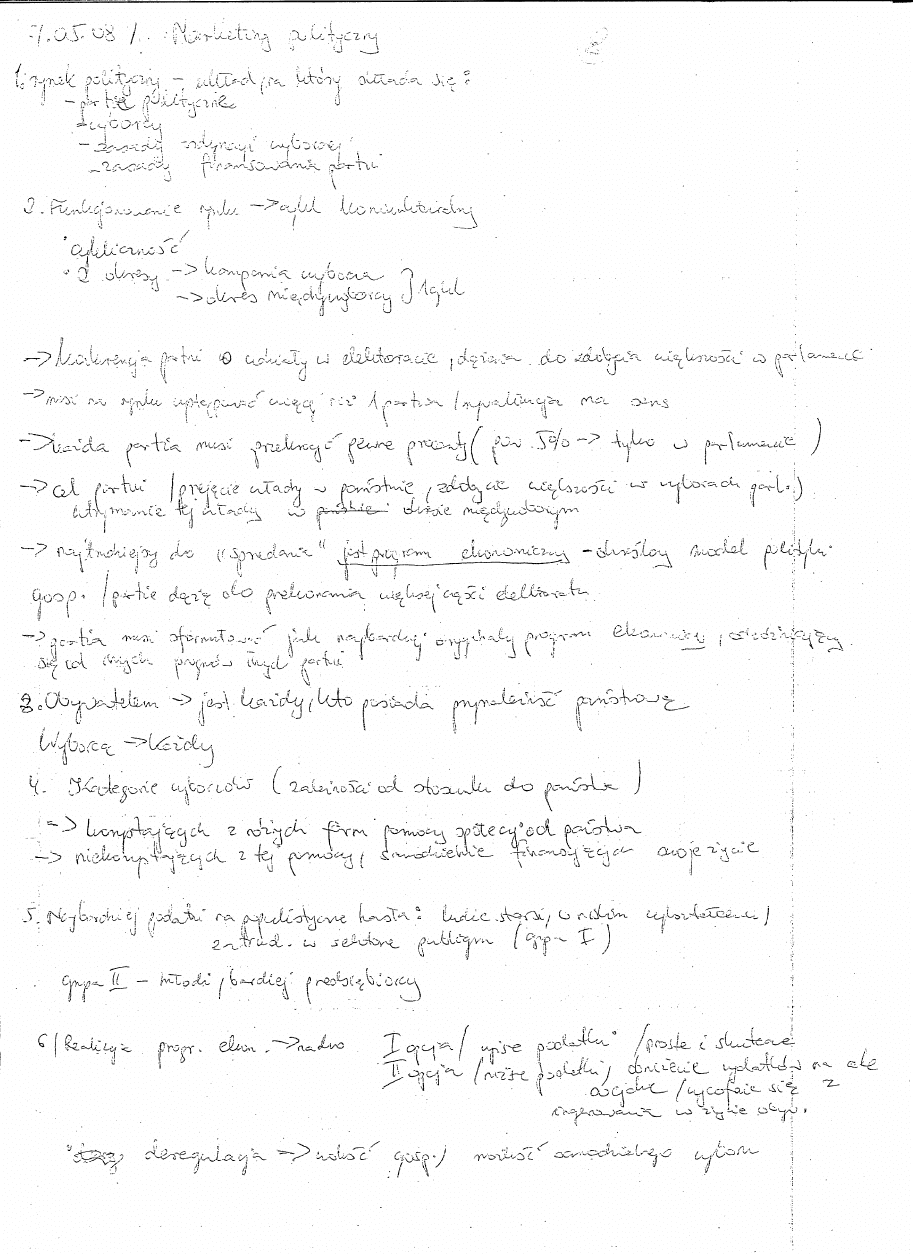 7.05.08 /. Marketing polityczny
1. rynek polityczny – układ, na który składa się:
- partie polityczne
- wyborcy
- zasady ordynacji wyborczej
- zasady finansowania partii
2. Funkcjonowanie rynku -> cykl koniunkturalny
cykliczność
2 okresy -> kampania wyborcza
-> okres międzywyborczy } 1 cykl
-> konkurencja partii o udziały w elektoracie, dążenia do zdobycia większości w parlamencie
-> musi na rynku występować więcej niż 1 partia / rywalizacja ma sens
-> każda partia musi przekroczyć pewne procenty ( pow. 5% -> tylko w parlamencie )
-> cel partii / przejęcie władzy w państwie, zdobycie większości w wyborach parl. )
utrzymanie tej władzy w okresie międzywyborczym
-> najtrudniejszy do "sprzedania" jest program ekonomiczny – określony model polityki
gosp. / partie dążą do przekonania większej części elektoratu
-> partia musi sformułować jak najbardziej oryginalny program ekonomiczny, odróżniający
się od innych programów innych partii
3. Obywatelem -> jest każdy, kto posiada przynależność państwową
Wyborcą -> każdy
4. Kategorie wyborców ( zależności od stosunku do państwa )
-> korzystających z różnych form pomocy społecznej od państwa
-> niekorzystających z tej pomocy, samodzielnie finansujących swoje życie
5. Najbardziej podatni na populistyczne hasła: ludzie starsi, o niskim wykształceniu /
zatrud. w sektorze publicznym ( grupa I )
grupa II – młodzi, bardziej przedsiębiorczy
6/ Realizacja progr. ekon. -> I opcja / wyższe podatki / proste i skuteczne
II opcja / niższe podatki, obniżenie wydatków na cele
socjalne / wycofanie się z
ingerowania w życie obyw.
deregulacja -> wolność gosp. / możność samodzielnego wyboru